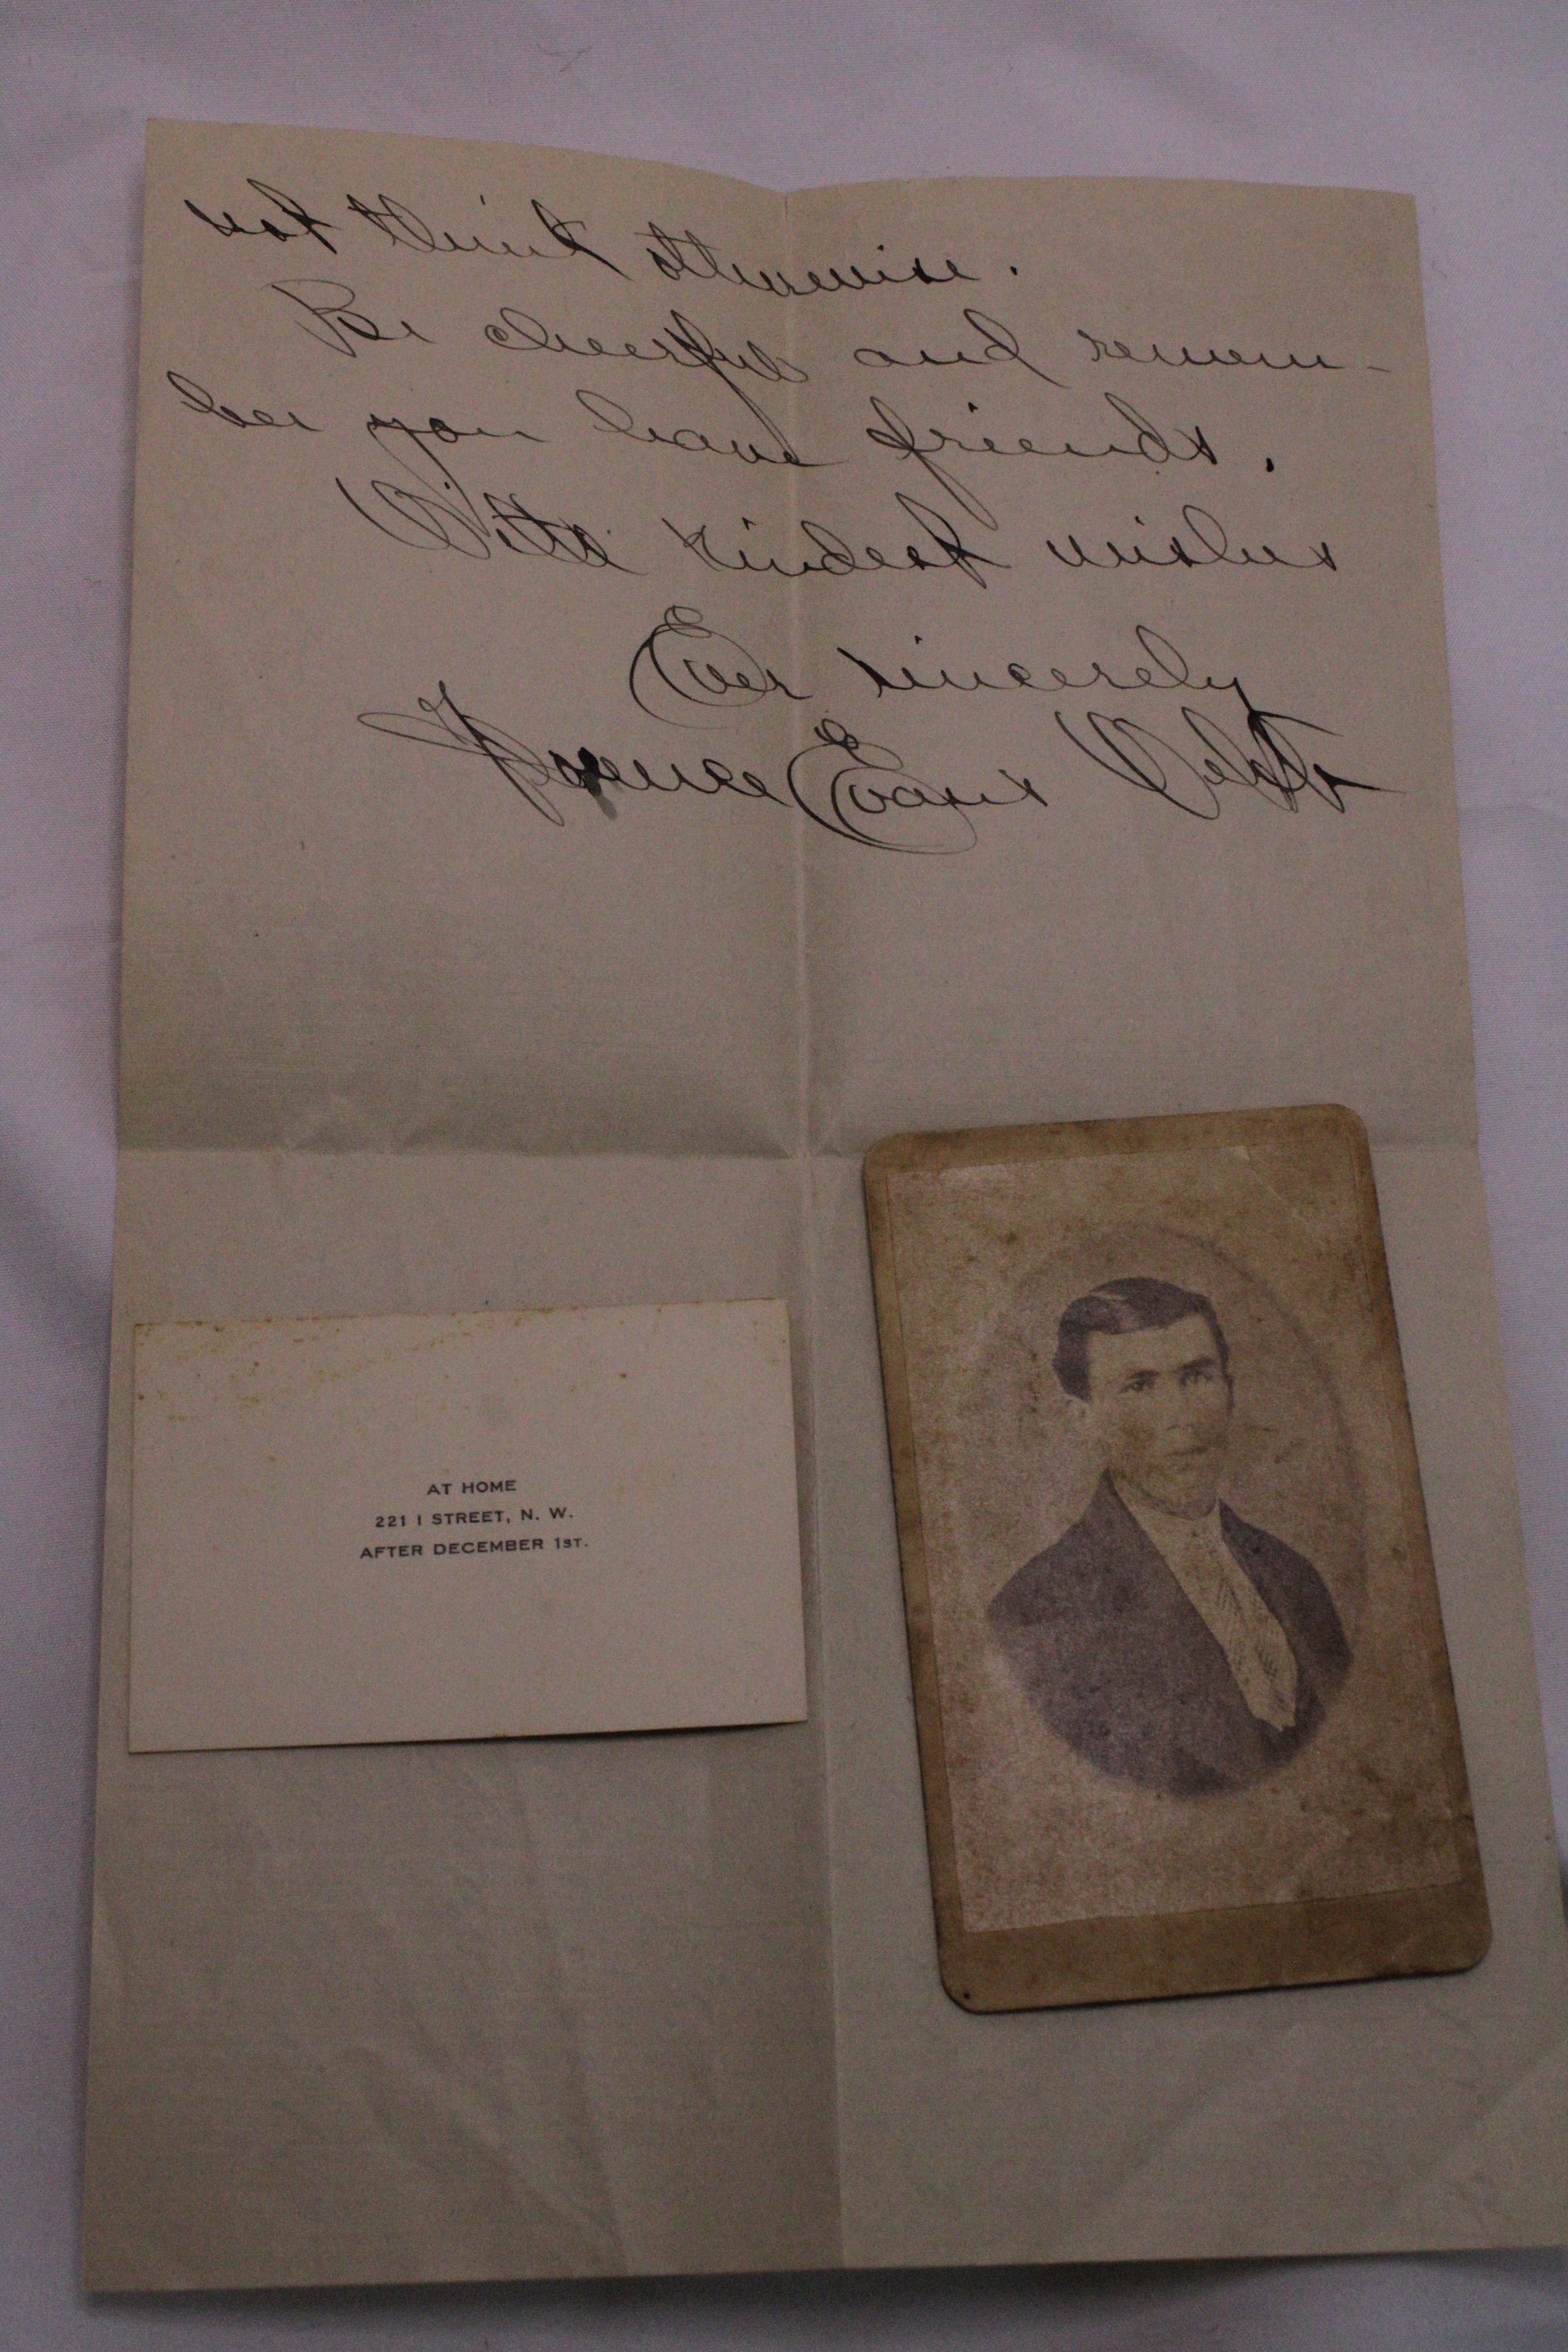 not think otherwise.
Be cheerful and remem-
ber you have friends.
With kindest wishes
Ever sincerely
Florence Evans
AT HOME
221 I STREET, N. W.
AFTER DECEMBER 1ST.